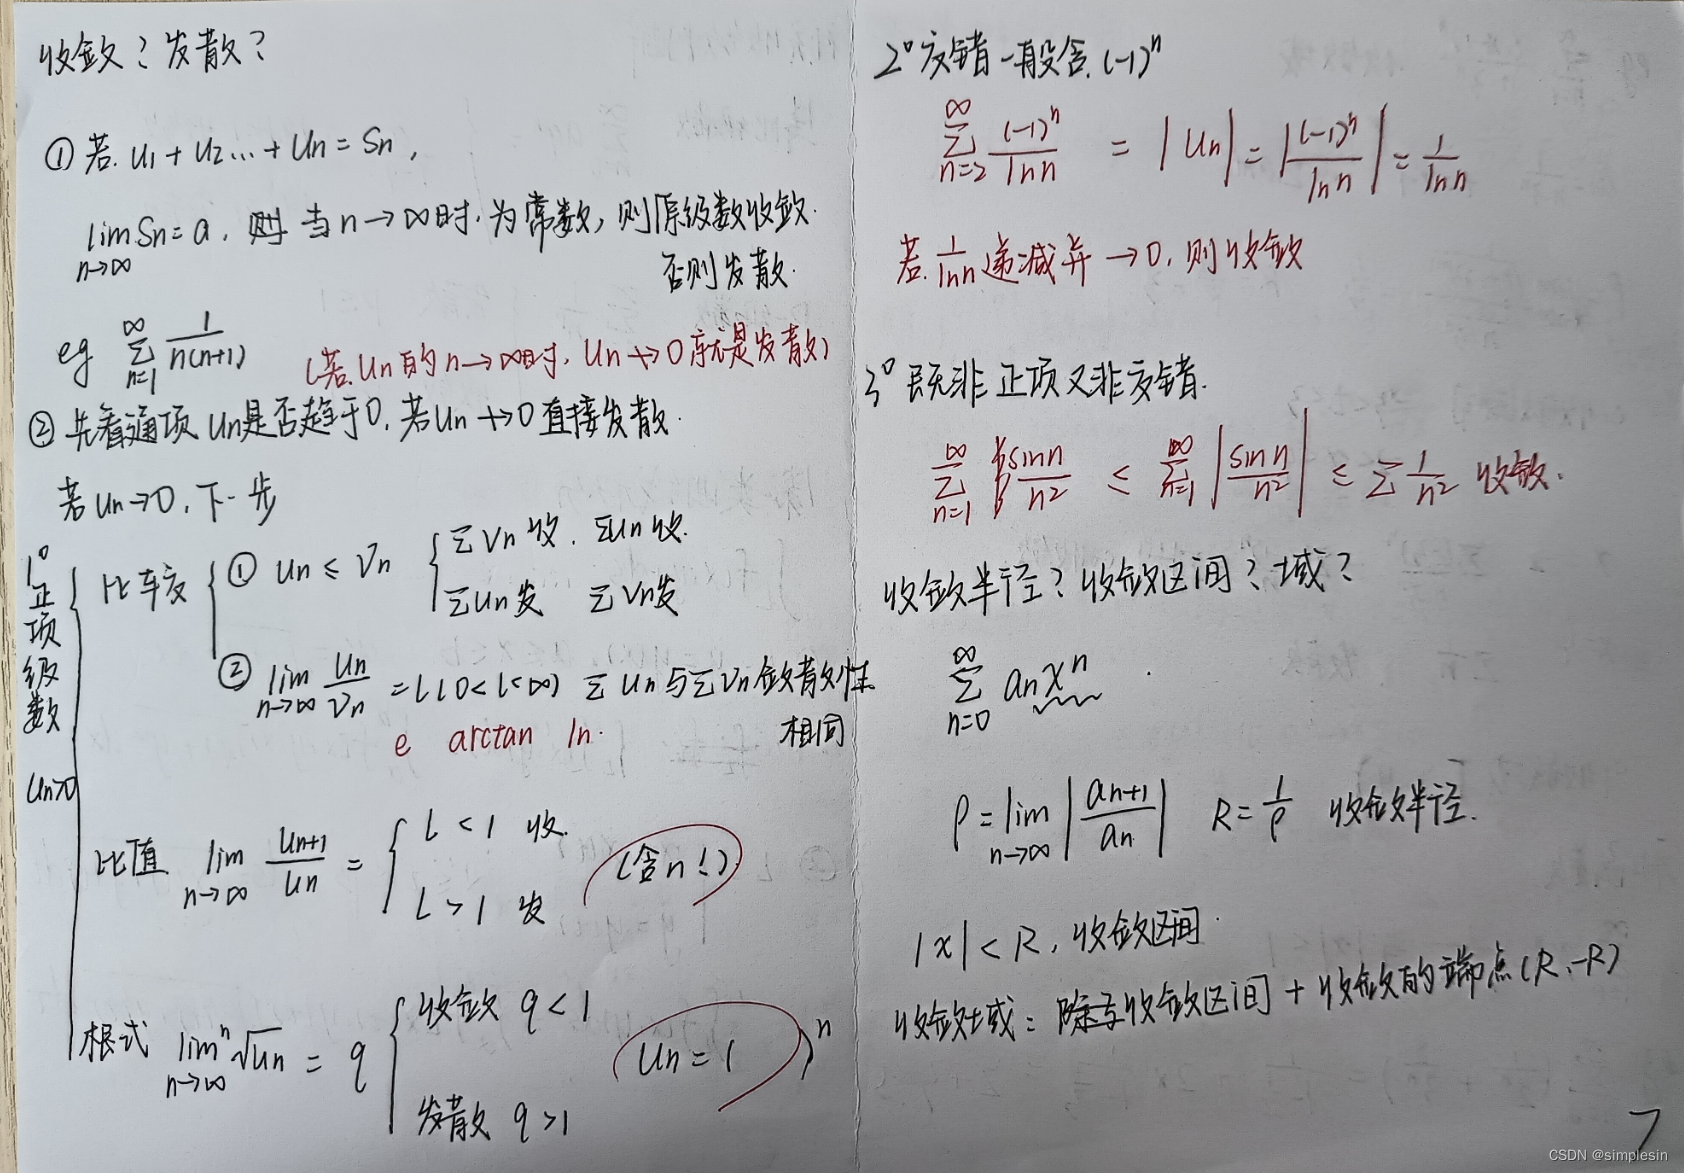 收敛？发散？
① 若. u₁ + u₂... + un = Sn ,
lim n→∞ Sn = a , 则 当 n→∞时. 为常数, 则原级数收敛.
否则发散.
eg ∑ n=1 ∞ 1/n(n+1)
(若. Un的n→∞时, Un↛0就是发散)
② 先看通项 Un是否趋于0, 若Un↛0 直接发散.
若Un→0, 下一步
1° 正项级数 Un>0
比较 ① Un ≤ Vn { ∑Vn收, ∑Un收.
∑Un发 ∑Vn发
② lim n→∞ Un/Vn = l (0<l<∞) ∑Un与∑Vn敛散性
相同
e arctan ln.
比值 lim n→∞ Un+1/Un = { l < 1 收.
l > 1 发
(含n!)
根式 lim n→∞ ⁿ√Un = q { 收敛 q < 1
发散 q > 1
Un = ( )ⁿ
2° 交错一般含 (-1)ⁿ
∑ n=2 ∞ (-1)ⁿ/lnn = |Un| = |(-1)ⁿ/lnn| = 1/lnn
若. 1/lnn 递减并→0, 则收敛
3° 既非正项又非交错.
∑ n=1 ∞ sinn/n² ≤ ∑ n=1 ∞ |sinn/n²| ≤ ∑ 1/n² 收敛.
收敛半径？收敛区间？域？
∑ n=0 ∞ anxⁿ
ρ = lim n→∞ |an+1/an| R = 1/ρ 收敛半径.
|x| < R, 收敛区间.
收敛域: 除了收敛区间 + 收敛的端点(R、-R)
7
CSDN @simplesin